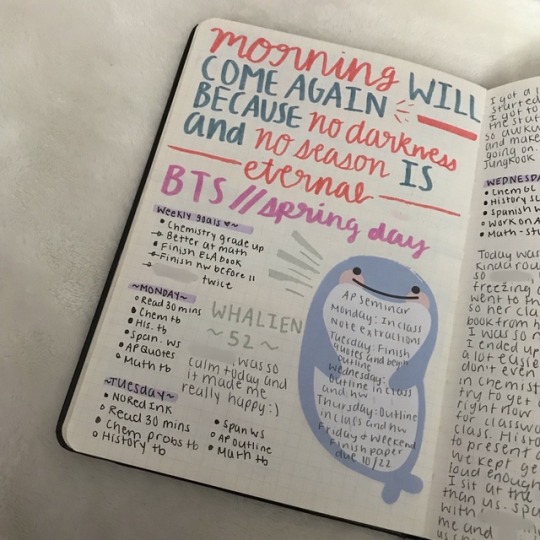 morning WILL
COME AGAIN
BECAUSE no darkness
and no season IS
eternal
BTS // spring day
weekly goals ♥~
• Chemistry grade up
→ Better at math
• Finish ELA book
→ Finish hw before 11
twice
~MONDAY~
o Read 30 mins
• Chem tb
• His. tb
• Span. ws
• AP Quotes
• Math tb
WHALIEN
~52~
was so
calm today and
it made me
really happy :)
~TUESDAY~
• NoRed Ink
o Read 30 mins
• Chem probs tb
o History tb
• Span ws
o AP outline
• Math tb
AP seminar
Monday: In class
Note extractions
Tuesday: Finish
quotes and begin
outline
Wednesday:
outline in class
and hw
Thursday: Outline
in class and hw
Friday → Weekend
Finish paper
due 10/22
I got a
started
I got to
the stuf
so awkw
and make
going on.
Jungkook
WEDNESDA
• Chem GL
• History SL
• Spanish w
o Work on A
• Math - st
Today wa
kinda rou
so
freezing
went to th
so her cla
book from h
I was so n
I ended up
a lot easie
don't even
in chemist
try to get a
right now
for classwo
class. Histo
to present a
we kept ge
loud enough
I sit at the
than us. Spa
with
me and